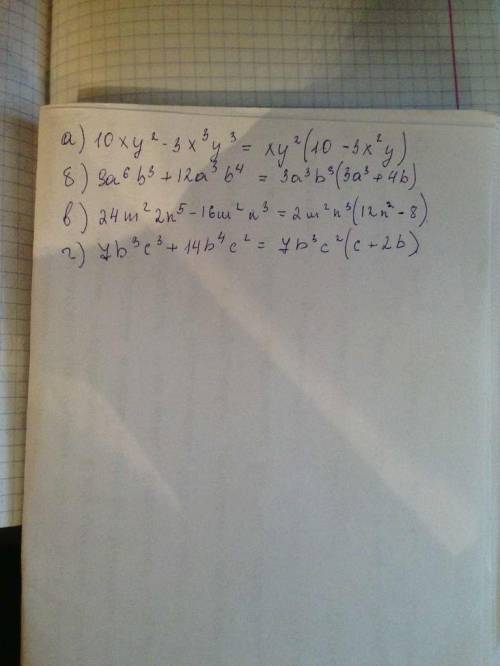 а) 10xy² - 3x³y³ = xy²(10 - 3x²y)
б) 9a⁶b³ + 12a³b⁴ = 3a³b³(3a³ + 4b)
в) 24m²2n⁵ - 16m²n³ = 2m²n³(12n² - 8)
г) 7b³c³ + 14b⁴c² = 7b³c²(c + 2b)